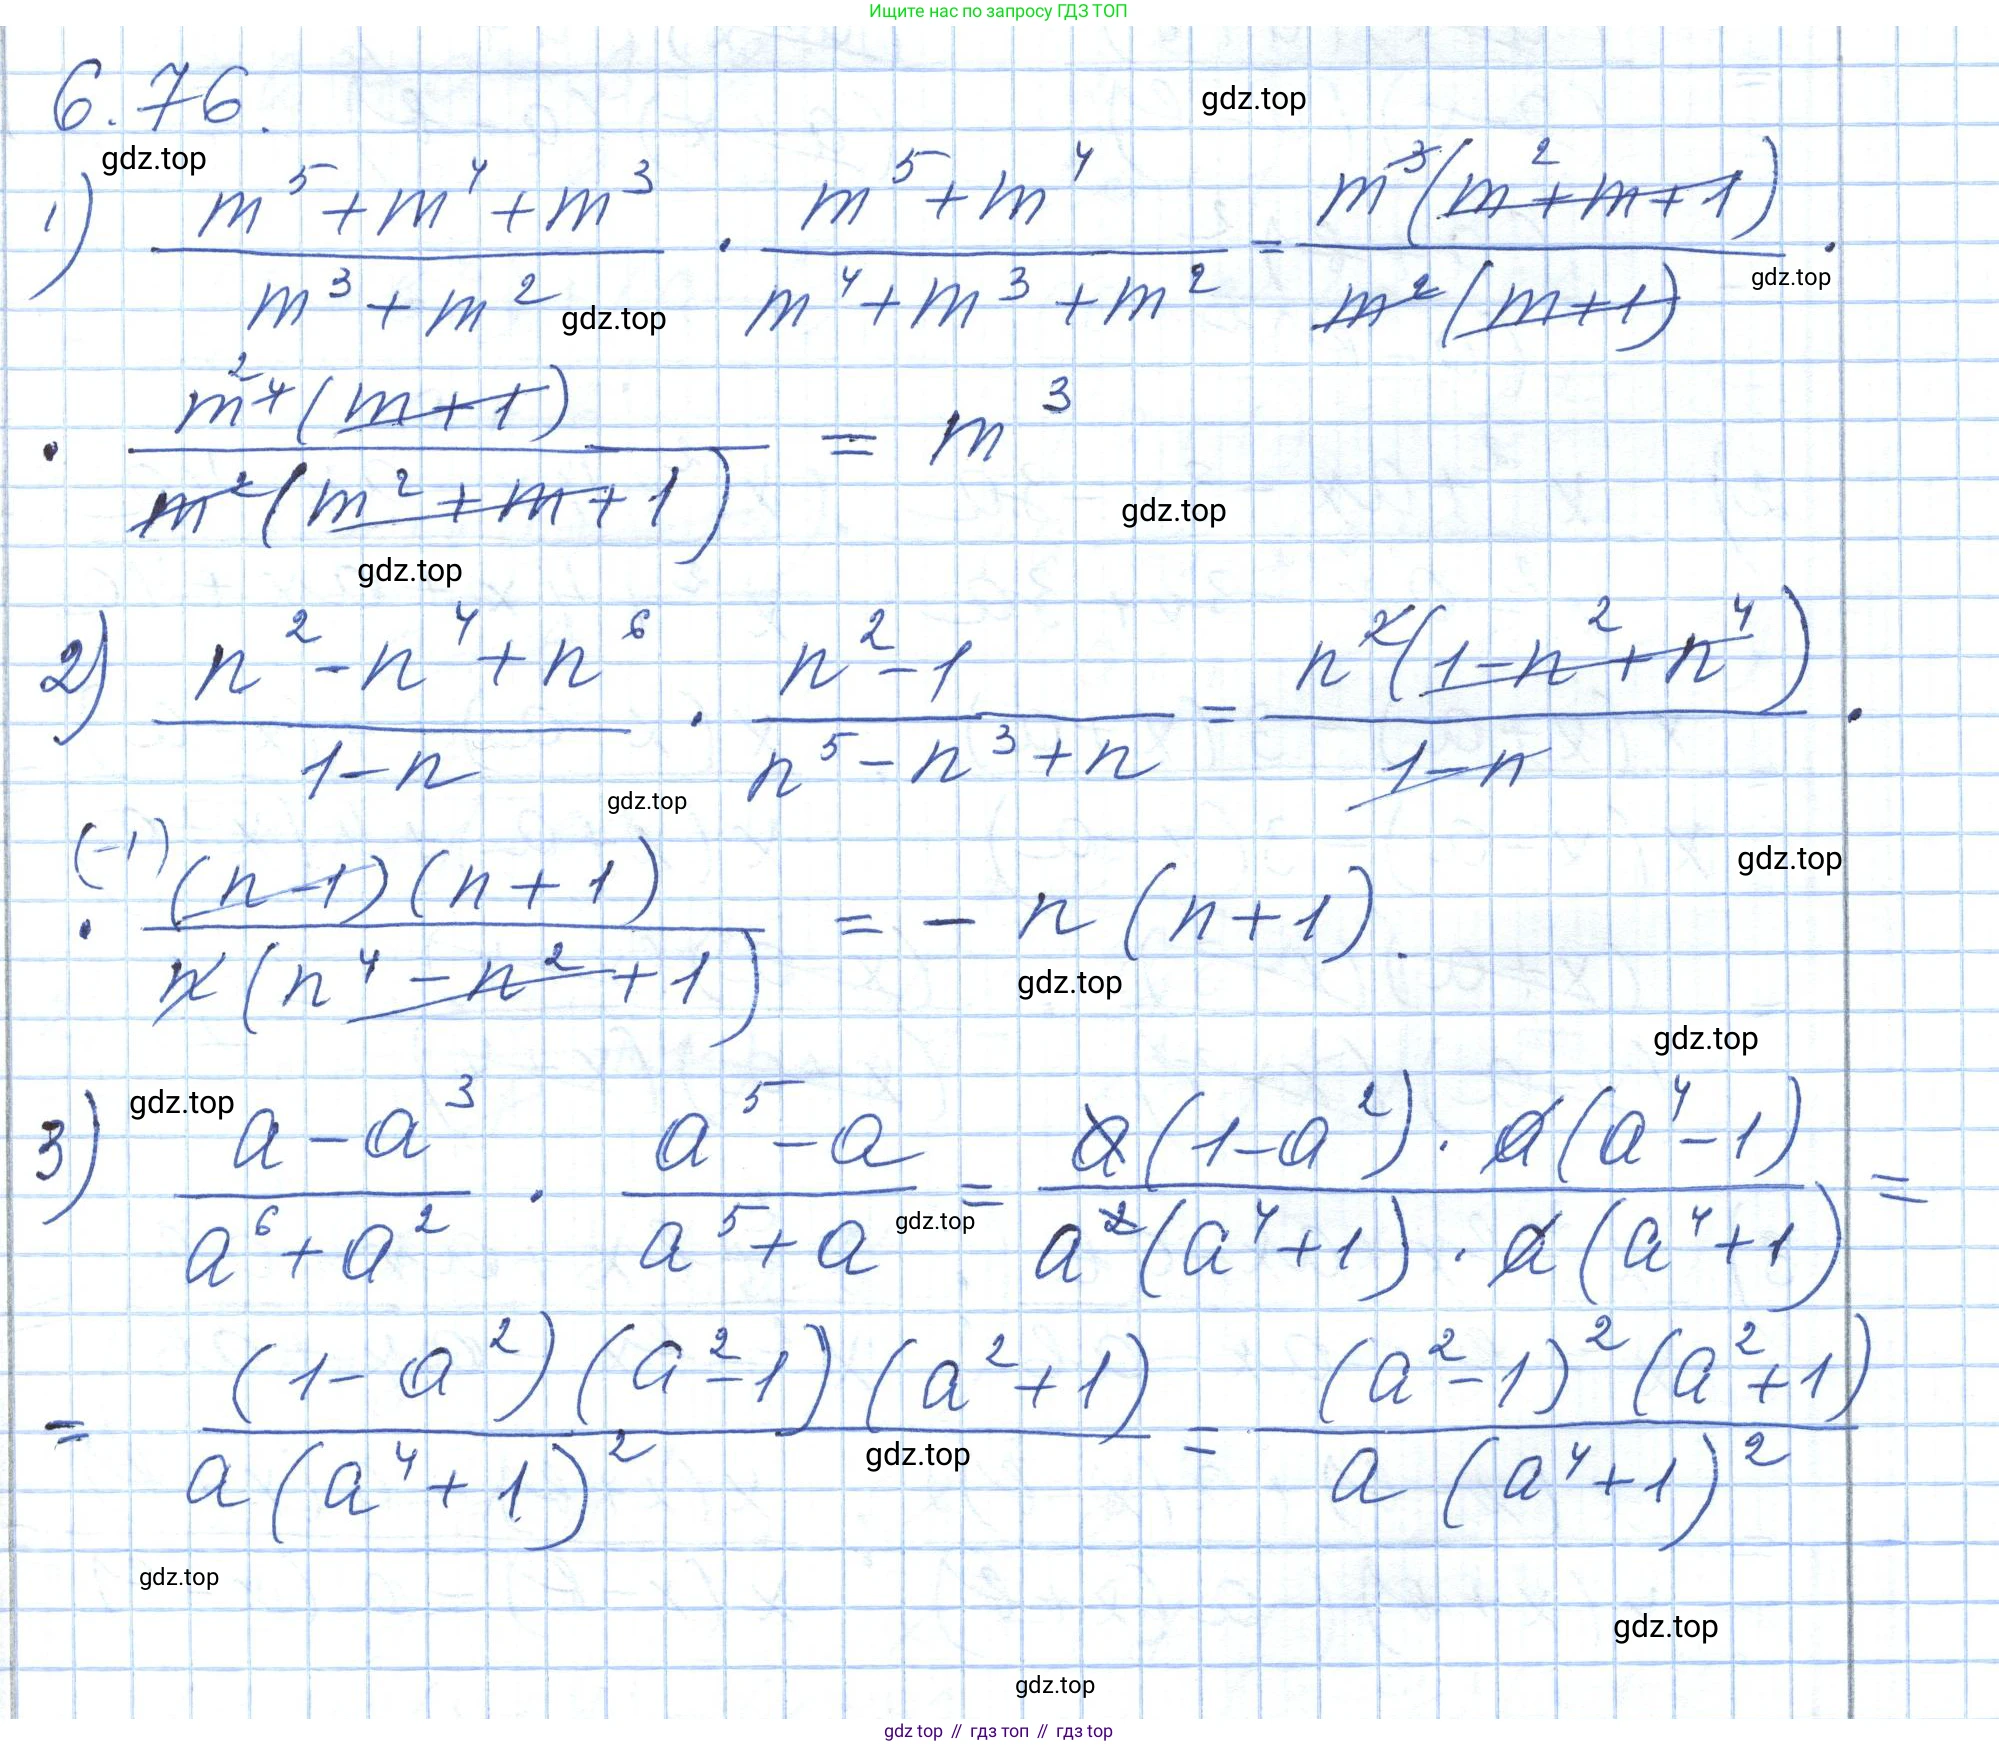 Ищите нас по запросу ГДЗ ТОП
6.76.
gdz.top
gdz.top
1) (m⁵+m⁴+m³)/(m³+m²) · (m⁵+m⁴)/(m⁴+m³+m²) = m³(m²+m+1)/(m²(m+1)) ·
gdz.top
gdz.top
· m⁴ ²(m+1)/(m²(m²+m+1)) = m³
gdz.top
gdz.top
2) (n²-n⁴+n⁶)/(1-n) · (n²-1)/(n⁵-n³+n) = n²(1-n²+n⁴)/(1-n) ·
gdz.top
gdz.top
· (-1)(n-1)(n+1)/(n(n⁴-n²+1)) = -n(n+1).
gdz.top
gdz.top
gdz.top
3) (a-a³)/(a⁶+a²) · (a⁵-a)/(a⁵+a) = a(1-a²)·a(a⁴-1)/(a²(a⁴+1)·a(a⁴+1)) =
gdz.top
= (1-a²)(a²-1)(a²+1)/(a(a⁴+1)²) = (a²-1)²(a²+1)/(a(a⁴+1)²)
gdz.top
gdz.top
gdz.top
gdz.top
gdz top // гдз топ // гдз top